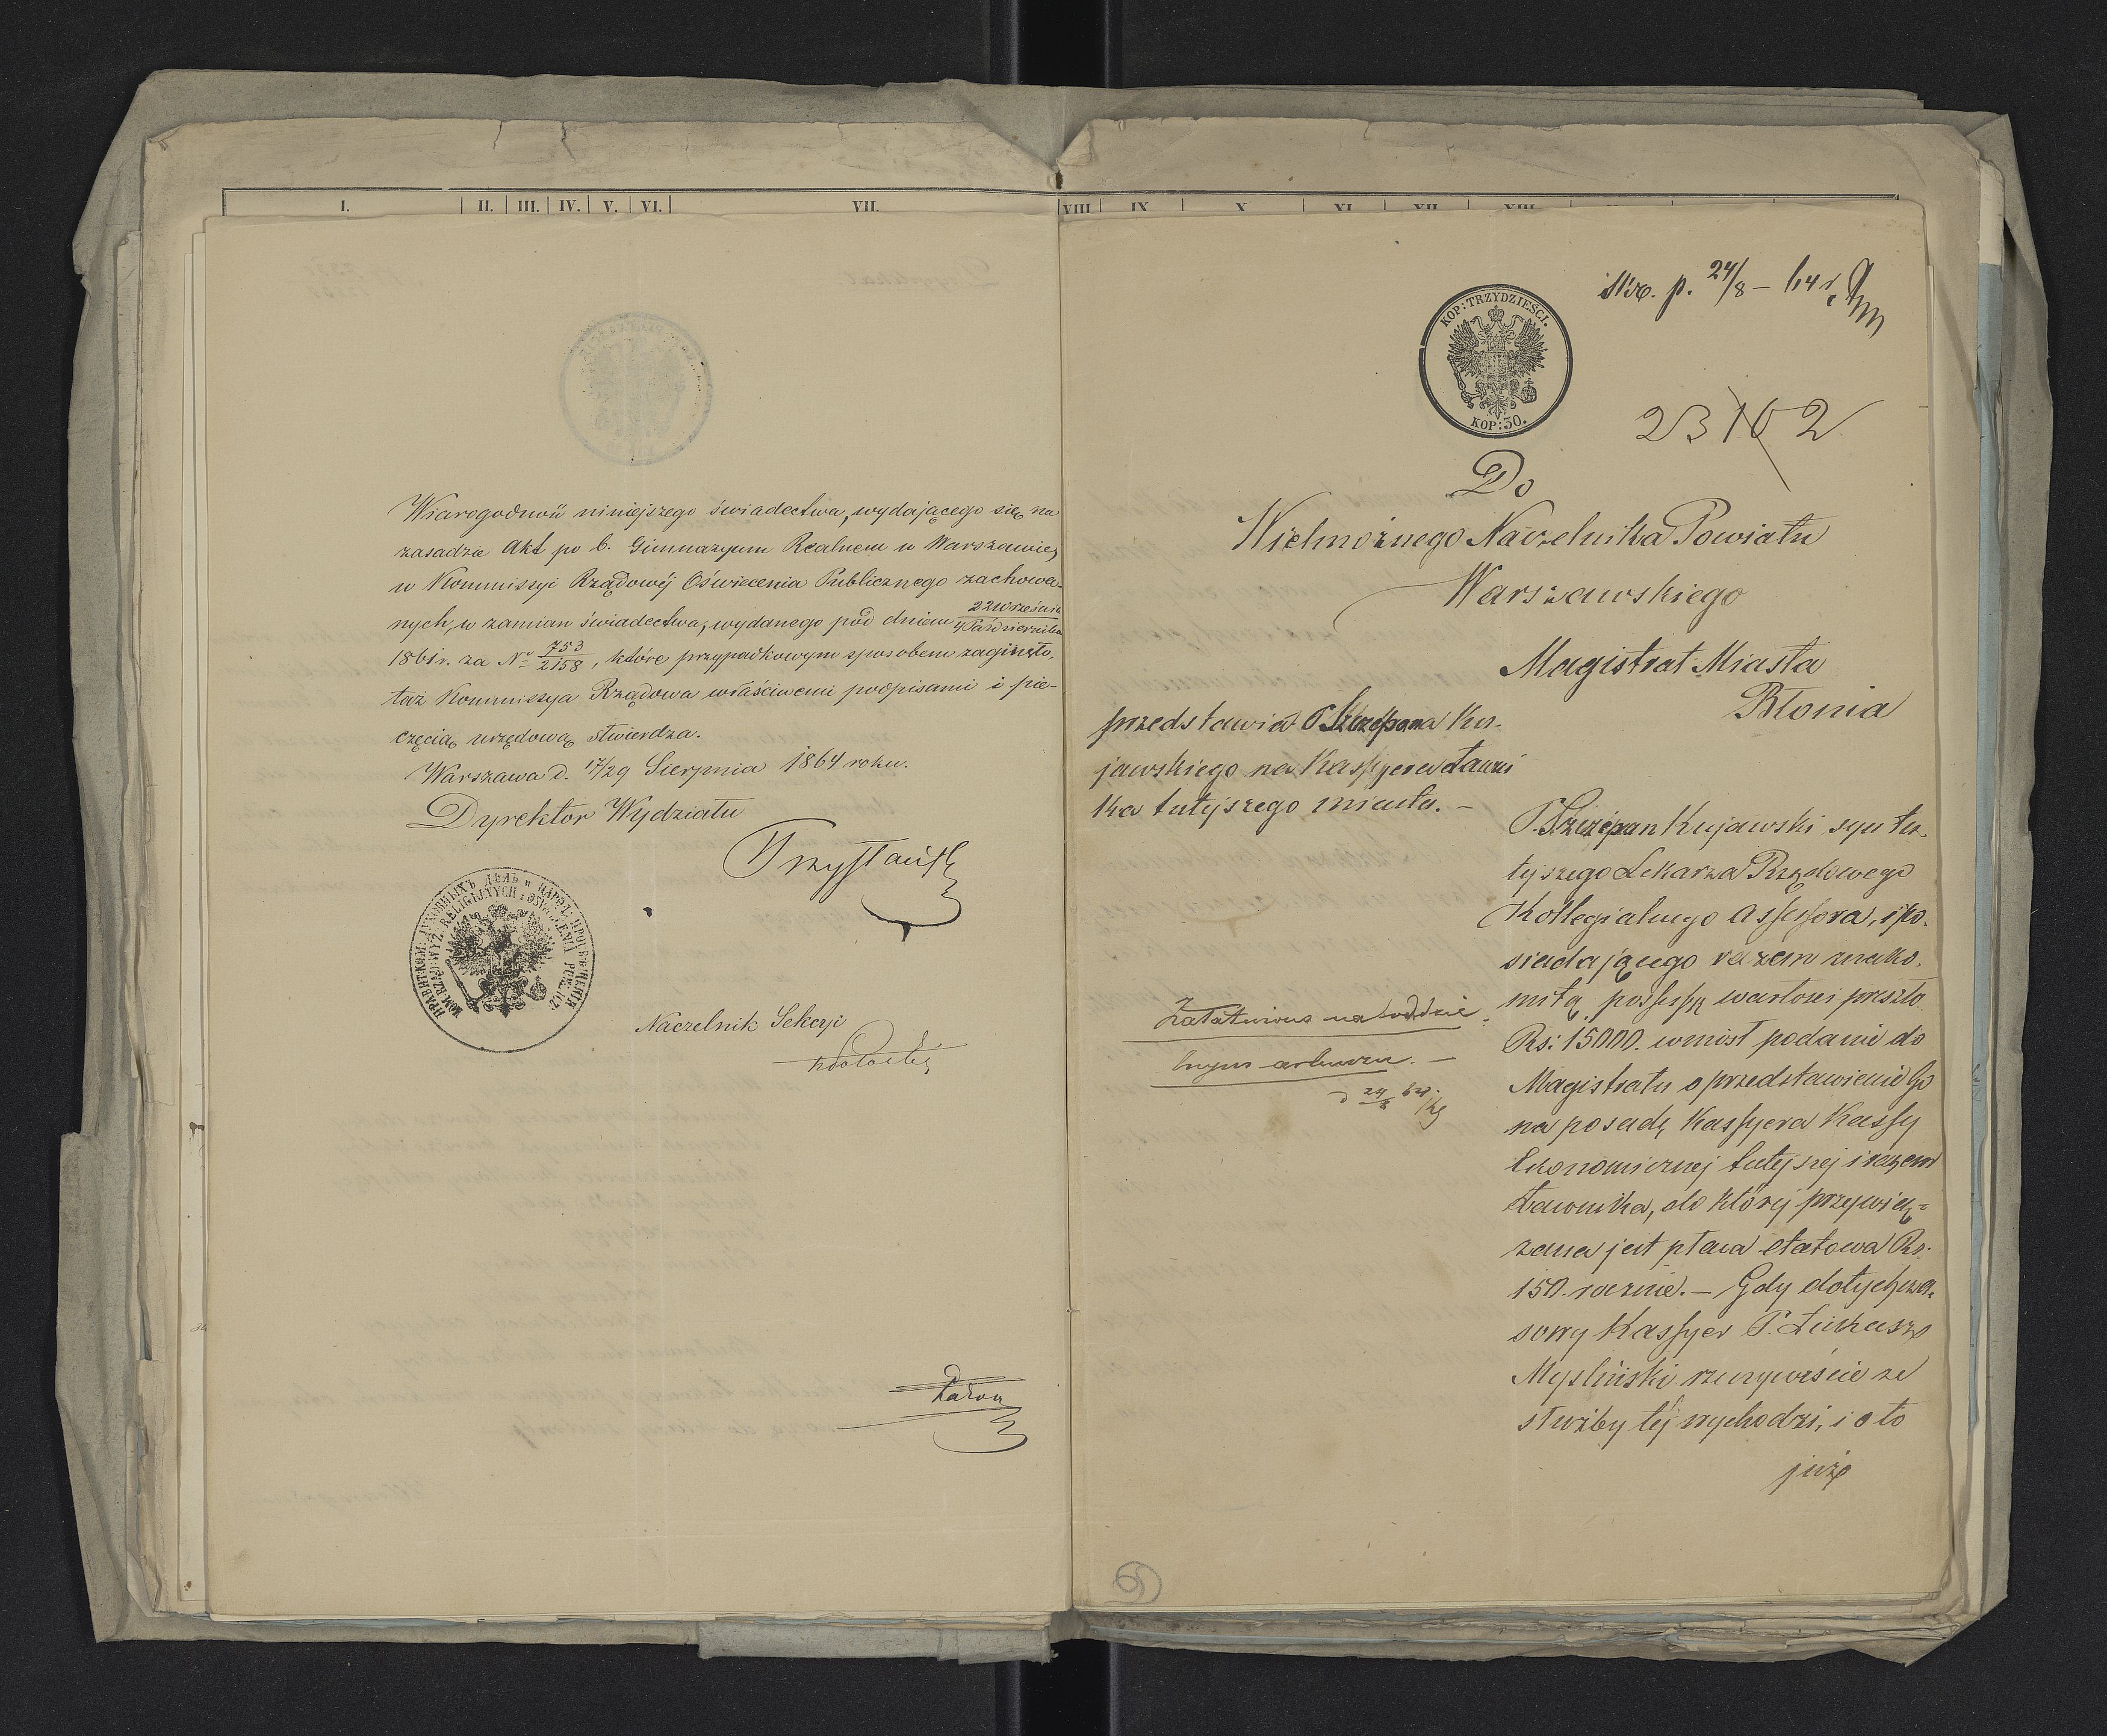 I. II. III. IV. V. VI. VII.
Wiarogodność niniejszego świadectwa, wydającego się na
zasadzie Akt po b. Gimnazyum Realnem w Warszawie,
w Kommissyi Rządowéj Oświecenia Publicznego zachowa-
nych, w zamian świadectwa, wydanego pod dniem 22 Września / 4 Października
1861 r. za No 753/2158, które przypadkowym sposobem zaginęło,
taż Kommissya Rządowa właściwemi podpisami i pie-
częcią urzędową stwierdza.
Warszawa d. 17/29 Sierpnia 1864 roku.
Dyrektor Wydziału
Naczelnik Sekcyi
VIII IX X XI XII XIII
p. 24/8 – 64 r.
KOP: TRZYDZIEŚCI.
KOP: 30.
23102
Do
Wielmożnego Naczelnika Powiatu
Warszawskiego
Magistrat Miasta
Błonia
przedstawia P. Szczepana Ku-
jawskiego na Kassyera Ławni
ka tutejszego miasta. –
P. Szczepan Kujawski syn tu-
tejszego Lekarza Rządowego
Kollegialnego Assessora, i po-
siadającego razem znako-
mitą possessyę wartości przeszło
Rs: 15000. wniósł podanie do
Magistratu o przedstawienie Go
na posadę Kassyera Kassy
Ekonomicznej tutejszej i razem
Ławnika, do której przywią-
zana jest płaca etatowa Rs.
150. rocznie. – Gdy dotychcza-
sowy Kassyer P. Łukasz
Mysliński rzeczywiście ze
służby téj wychodzi, i o to
już
Załatwiono na oddzie
lnym arkuszu. –
d 24/8 64.